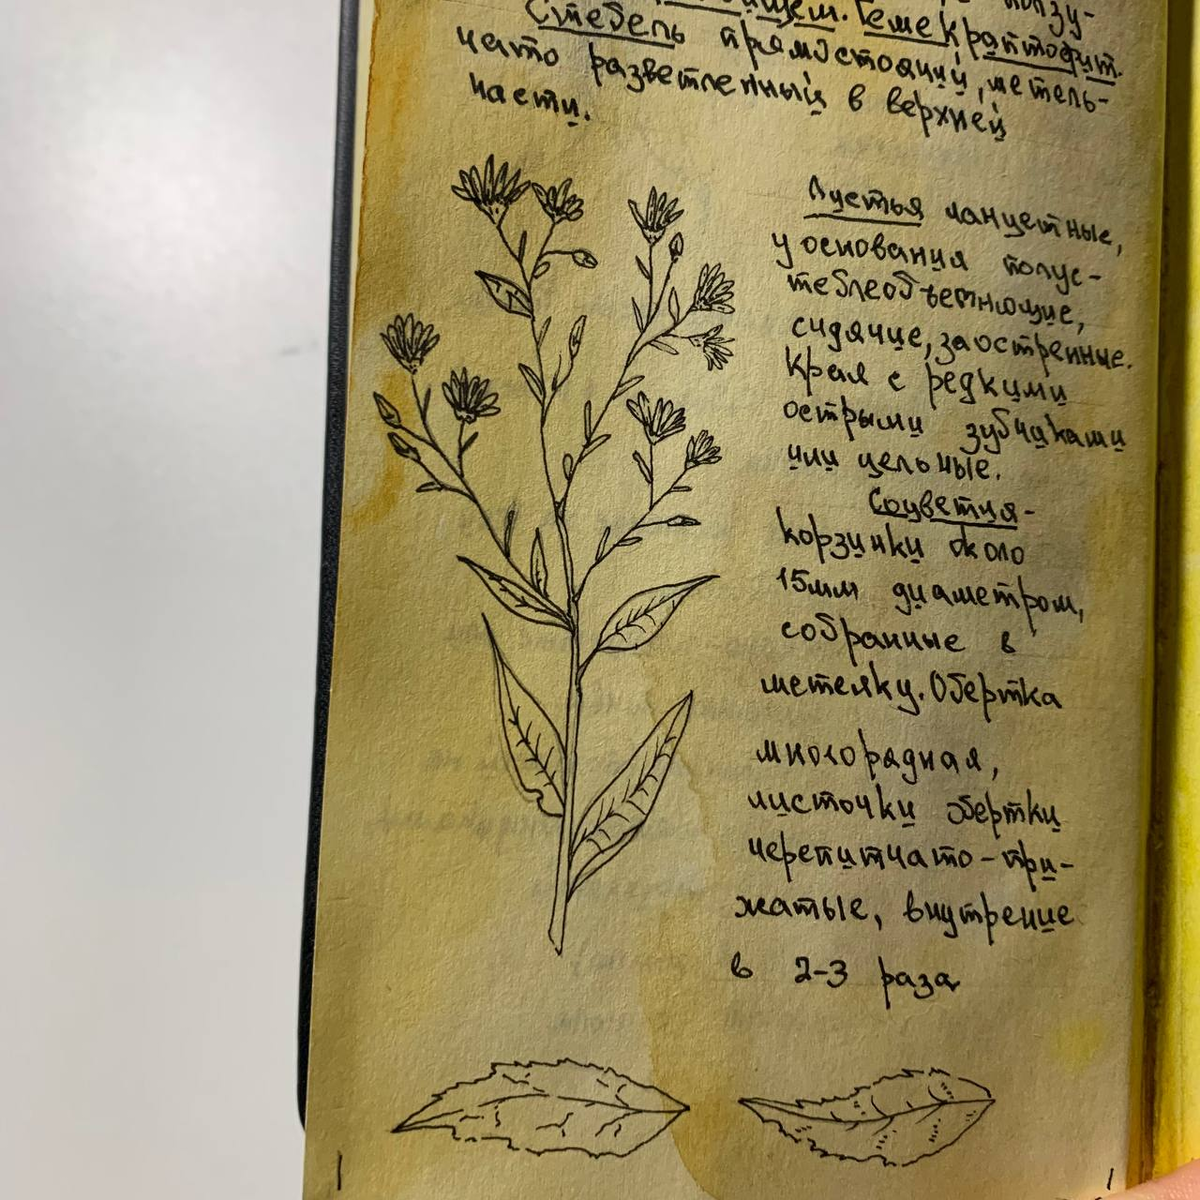 ползу-
Гемекраптофит.
Стебель прямостоящий, метель-
чато разветленный в верхней
части.
Лустья ланцетные,
у основания полус-
теблеобъемлющие,
сидячие, заостренные.
Края с редкими
острыми зубчиками
или цельные.
Соцветия-
корзинки около
15мм диаметром,
собранные в
метелку. Обертка
многорядная,
листочки обертки
черепитчато-при-
жатые, внутрение
в 2-3 раза